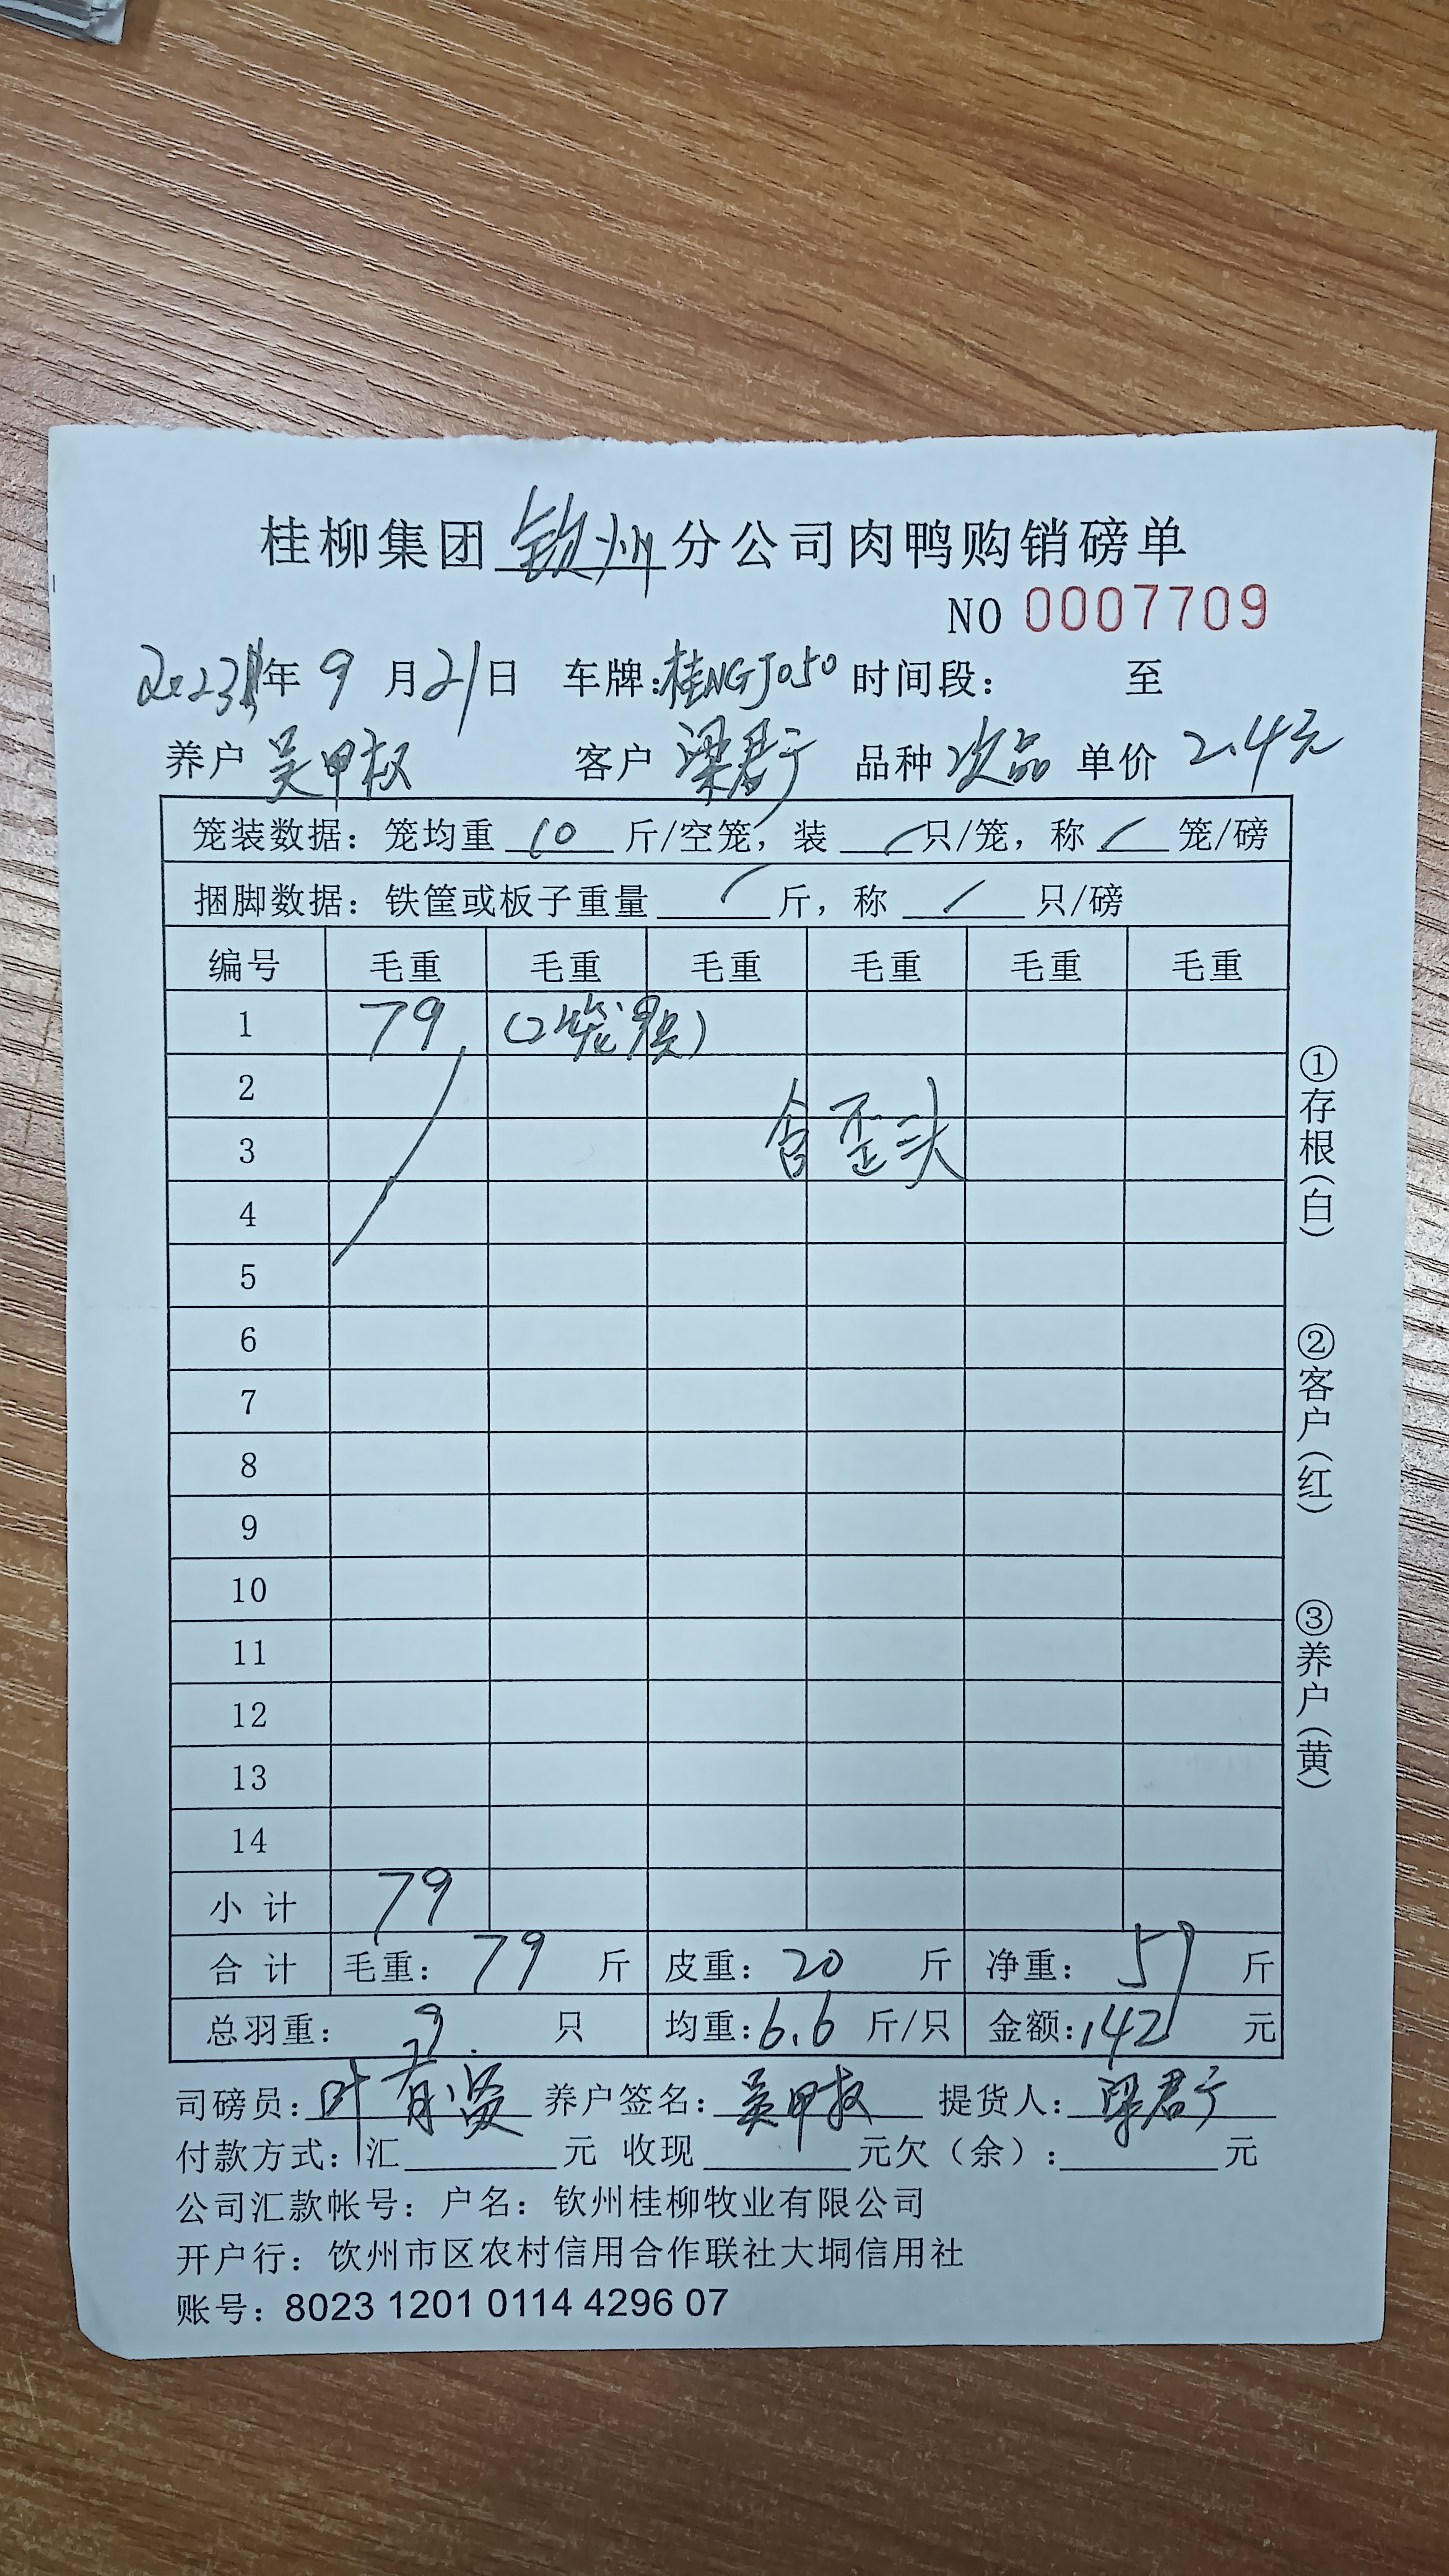 桂柳集团钦州分公司肉鸭购销磅单
NO 0007709
2023年 9 月 21 日 车牌:桂NGJ050 时间段: 至
养户 吴甲权 客户 梁君于 品种 次品 单价 2.4元
笼装数据: 笼均重 10 斤/空笼, 装 / 只/笼, 称 / 笼/磅
捆脚数据: 铁筐或板子重量 / 斤, 称 / 只/磅
编号 毛重 毛重 毛重 毛重 毛重 毛重
1 79 (2笼, 9只)
2
含歪头
3
4
5
6
7
8
9
10
11
12
13
14
小 计 79
合 计 毛重: 79 斤 皮重: 20 斤 净重: 59 斤
总羽重: 9 只 均重: 6.6 斤/只 金额: 142 元
司磅员: 叶有 养户签名: 吴甲权 提货人: 梁君于
付款方式: 汇 元 收现 元欠(余): 元
公司汇款帐号: 户名: 钦州桂柳牧业有限公司
开户行: 饮州市区农村信用合作联社大垌信用社
账号: 8023 1201 0114 4296 07
①存根(白)
②客户(红)
③养户(黄)